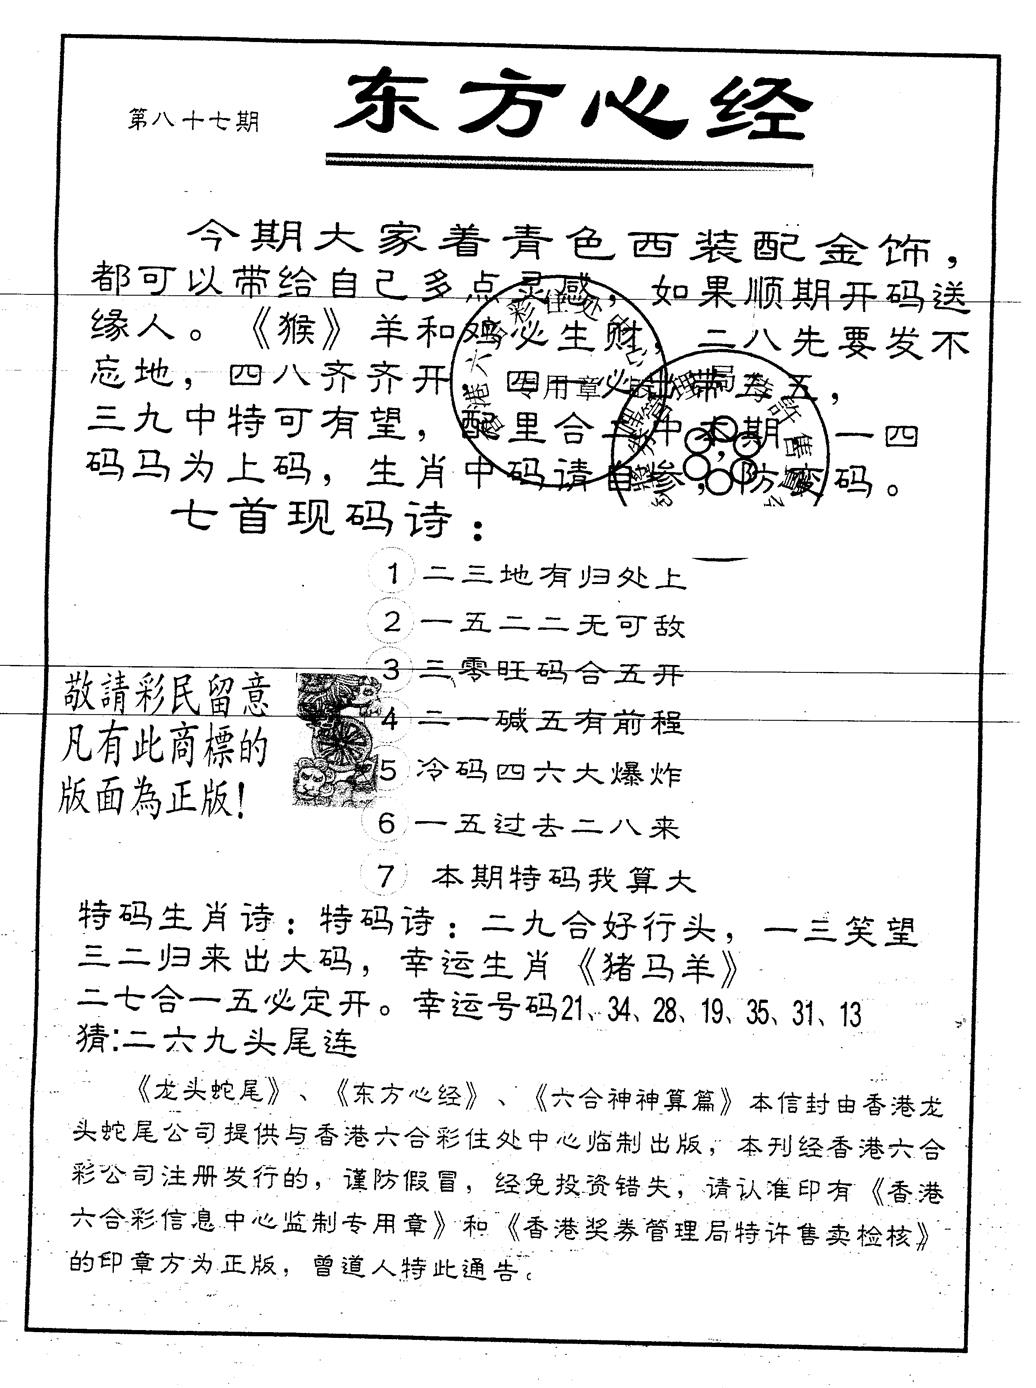 第八十七期
东方心经
今期大家着青色西装配金饰，
都可以带给自己多点灵感，如果顺期开码送
缘人。《猴》羊和鸡必生财，二八先要发不
忘地，四八齐齐开，四一必出带三五，
三九中特可有望，配里合二中本期，一四
码马为上码，生肖中码请自参，防变码。
专用章
七首现码诗：
1 二三地有归处上
2 一五二二无可敌
3 三零旺码合五开
4 二一碱五有前程
5 冷码四六大爆炸
6 一五过去二八来
7 本期特码我算大
敬請彩民留意
凡有此商標的
版面為正版！
特码生肖诗：特码诗：二九合好行头，一三笑望
三二归来出大码，幸运生肖《猪马羊》
二七合一五必定开。幸运号码21、34、28、19、35、31、13
猜:二六九头尾连
《龙头蛇尾》、《东方心经》、《六合神神算篇》本信封由香港龙
头蛇尾公司提供与香港六合彩住处中心临制出版，本刊经香港六合
彩公司注册发行的，谨防假冒，经免投资错失，请认准印有《香港
六合彩信息中心监制专用章》和《香港奖券管理局特许售卖检核》
的印章方为正版，曾道人特此通告。